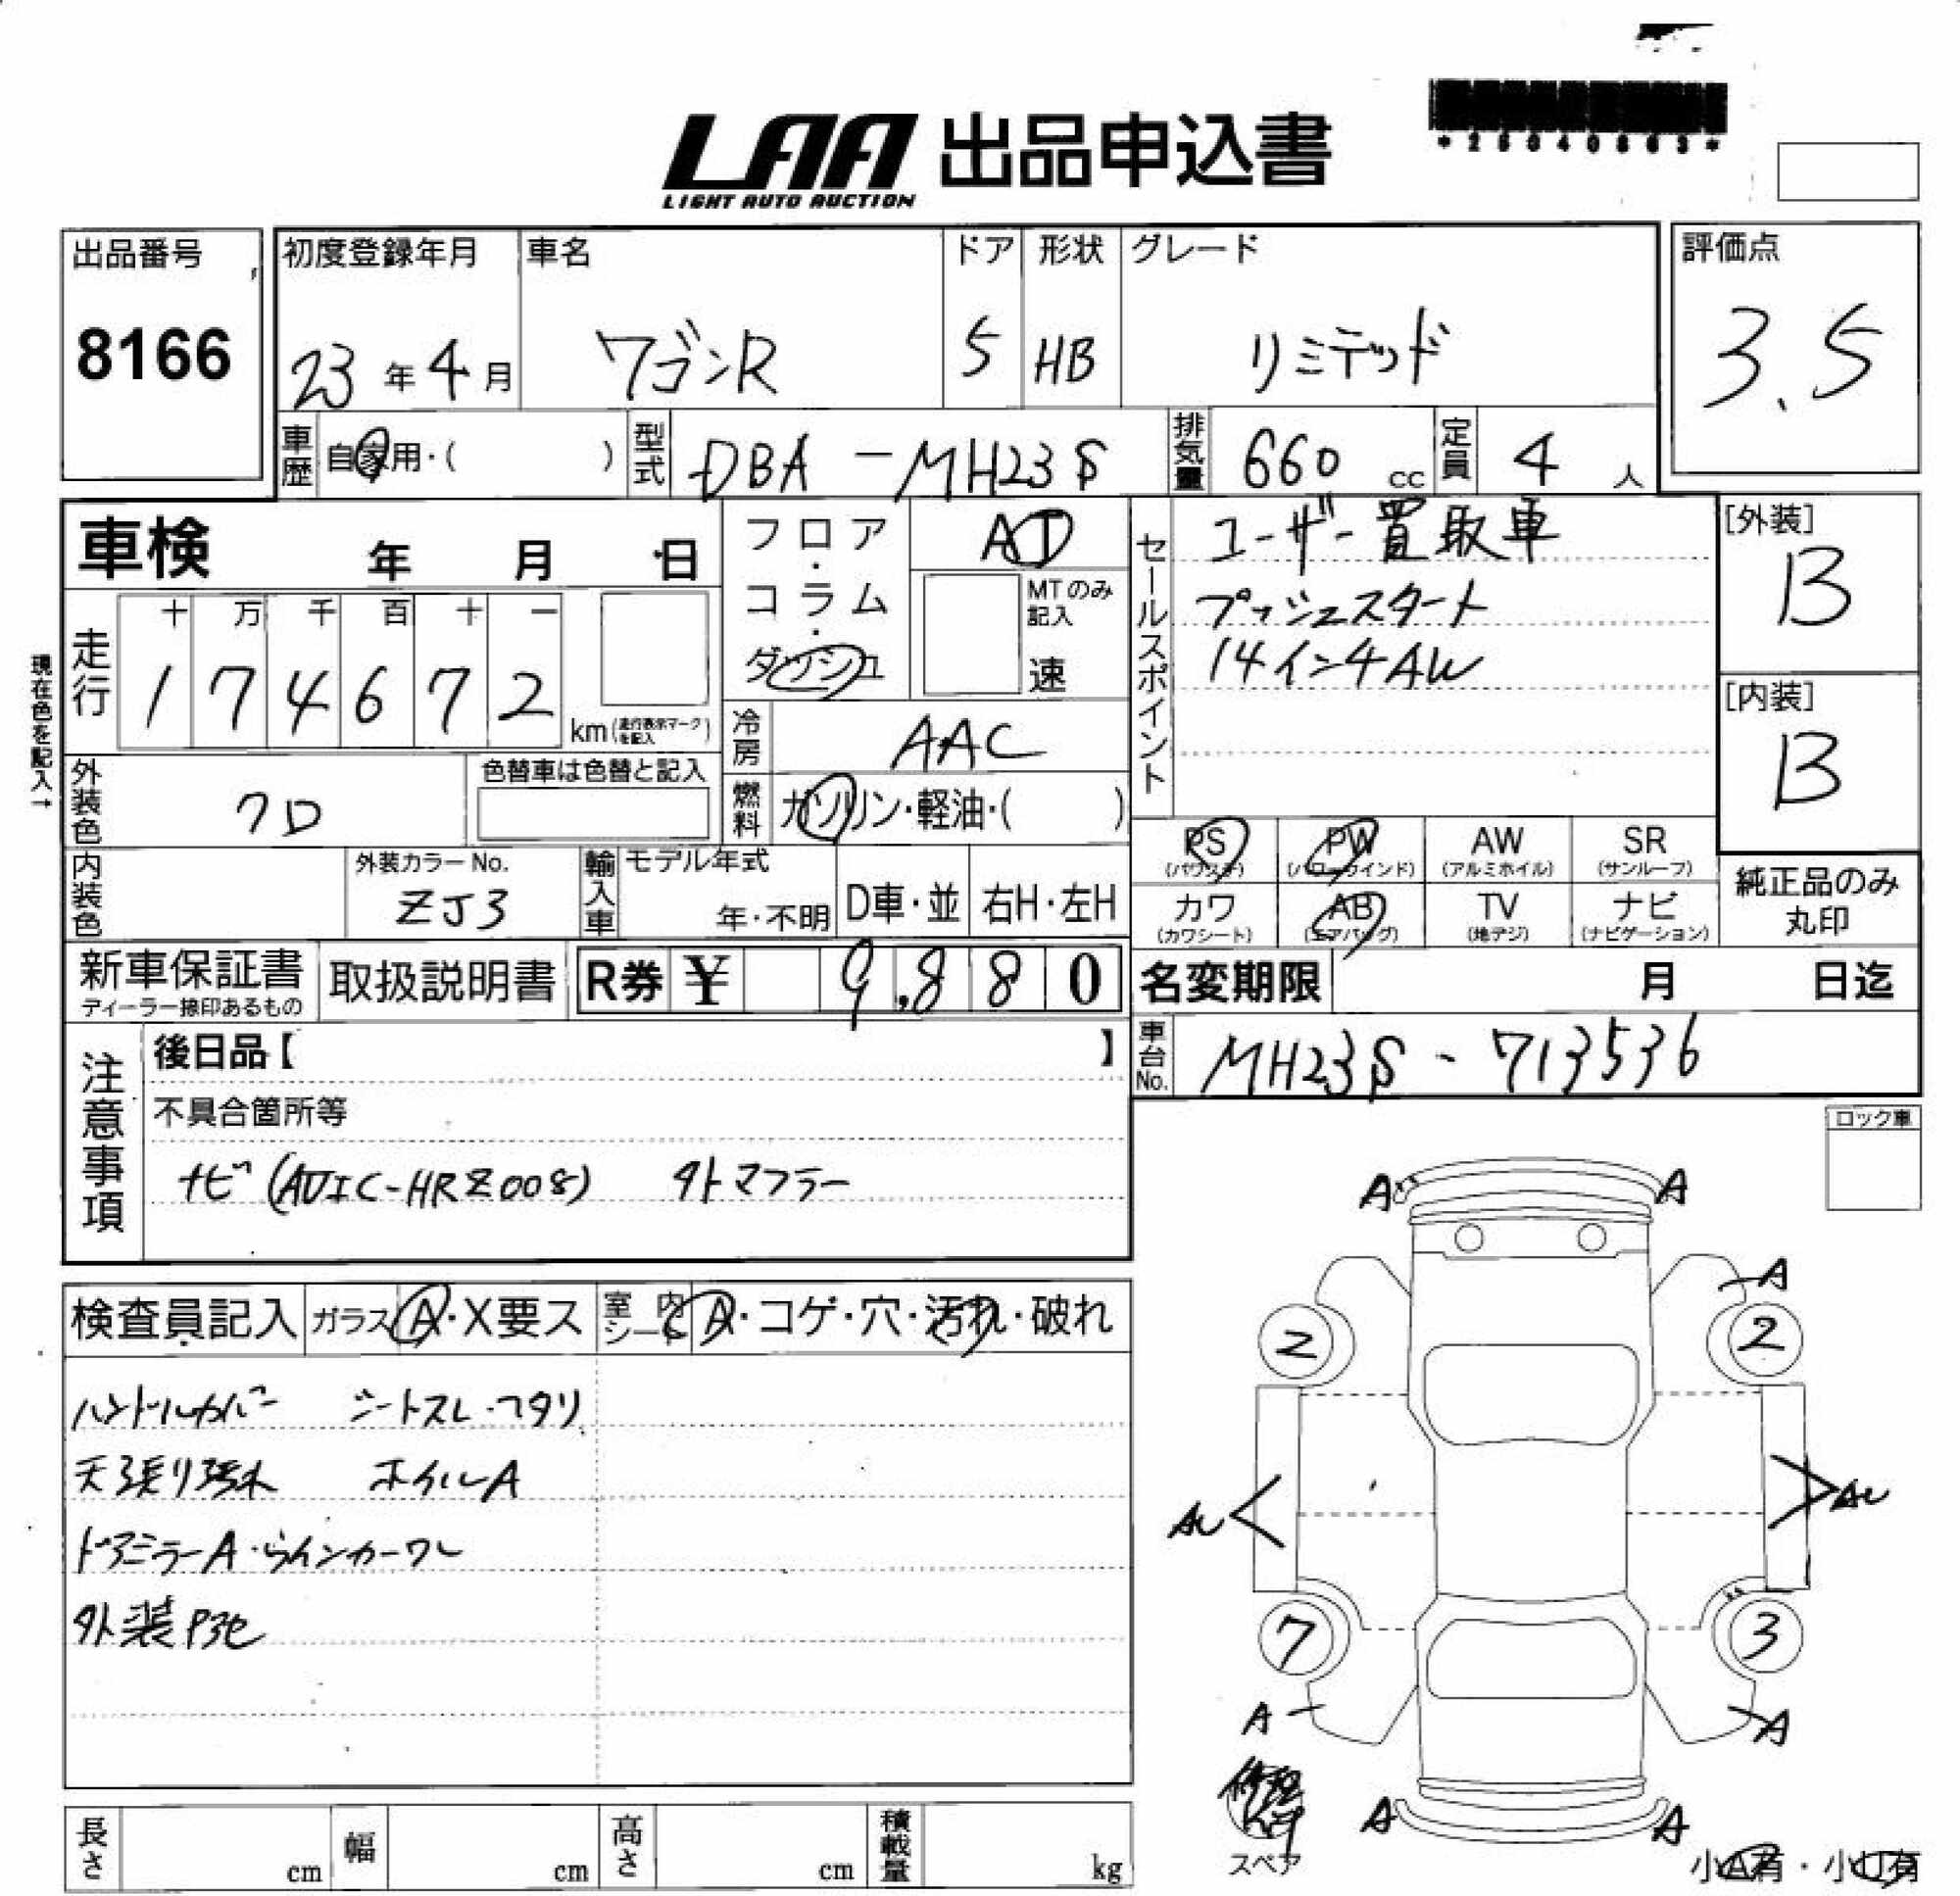 LAA 出品申込書
LIGHT AUTO AUCTION
*25040863*
出品番号
8166
初度登録年月
23年4月
車名
ワゴンR
ドア
5
形状
HB
グレード
リミテッド
評価点
3.5
車歴
自家用・( )
型式
DBA-MH23S
排気量
660 cc
定員
4 人
車検 年 月 日
フロア・コラム・ダッシュ
AT
MTのみ記入
速
セールスポイント
ユーザー買取車
プッシュスタート
14インチAW
[外装]
B
[内装]
B
現在色を記入→
走行
十 万 千 百 十 一
1 7 4 6 7 2
km(走行表示マークを記入)
冷房
AAC
外装色
クロ
色替車は色替と記入
燃料
ガソリン・軽油・( )
内装色
外装カラーNo.
ZJ3
輸入車
モデル年式
年・不明
D車・並
右H・左H
PS
(パワステ)
PW
(パワーウインド)
AW
(アルミホイル)
SR
(サンルーフ)
カワ
(カワシート)
AB
(エアバッグ)
TV
(地デジ)
ナビ
(ナビゲーション)
純正品のみ
丸印
新車保証書
ディーラー捺印あるもの
取扱説明書
R券 ¥ 9,880
名変期限 月 日迄
車台No.
MH23S-713536
注意事項
後日品【 】
不具合箇所等
ナビ(AVIC-HRZ008) タトマフラー
ロック車
検査員記入
ガラス A・X要ス
室内シート A・コゲ・穴・汚れ・破れ
ハンドルカバー シートスレ・ヘタリ
天張り汚れ ホイルA
ドアミラーA・ウインカーワレ
外装P3セ
A A
A
2 2
AU AU
7 3
A A
A A
スペア
小A有・小U有
長さ cm
幅 cm
高さ cm
積載量 kg